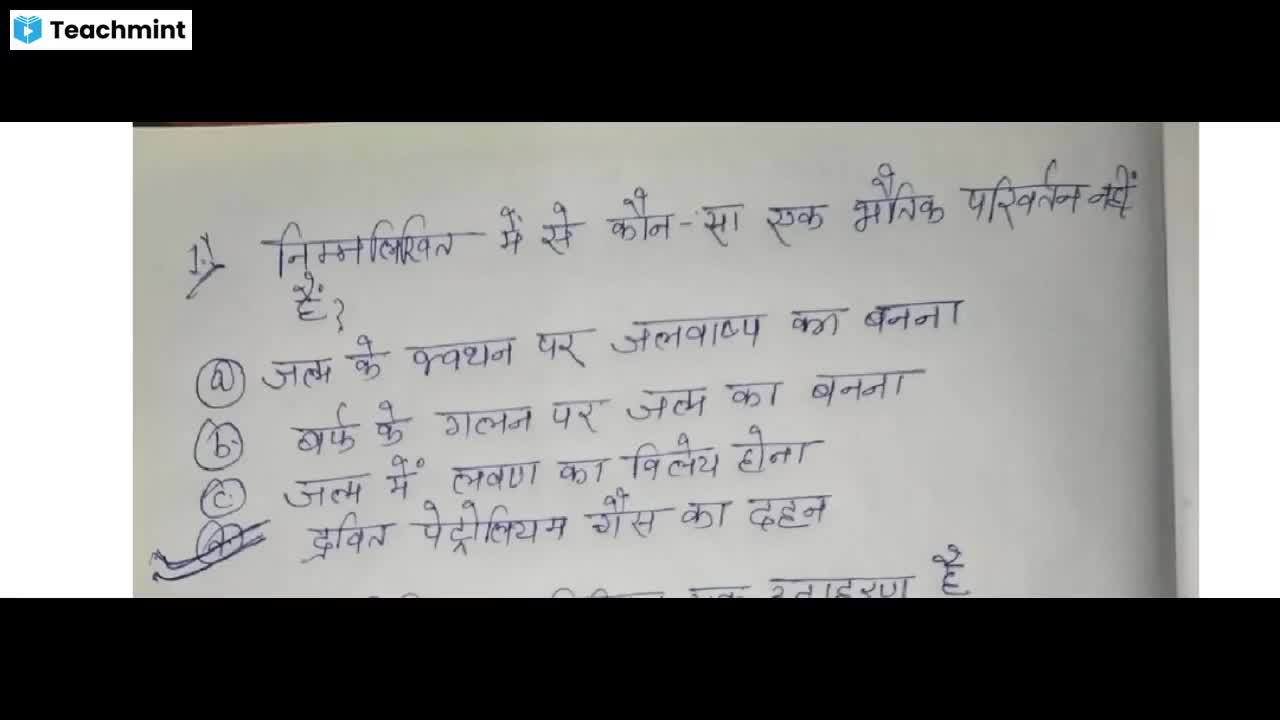 Teachmint
1.) निम्नलिखित में से कौन-सा एक भौतिक परिवर्तन नहीं
हैं?
(a) जल के क्वथन पर जलवाष्प का बनना
(b.) बर्फ के गलन पर जल का बनना
(c.) जल में लवण का विलेय होना
द्रवित पेट्रोलियम गैस का दहन
एक उदाहरण है